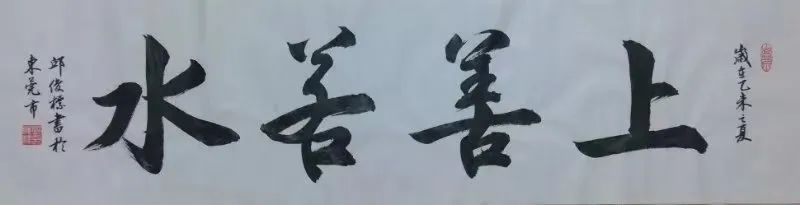 歲在乙未之夏
上善若水
邱俊標書於
東莞市